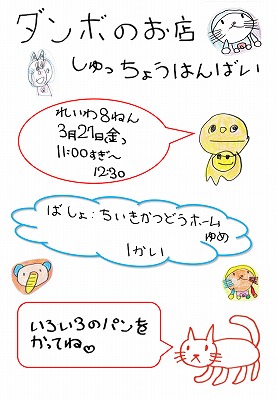 ダンボのお店
しゅっちょうはんばい
れいわ8ねん
3月27日(金)
11:00すぎ〜
12:30
ばしょ:ちいきかつどうホーム
ゆめ
1かい
いろいろのパンを
かってね♡